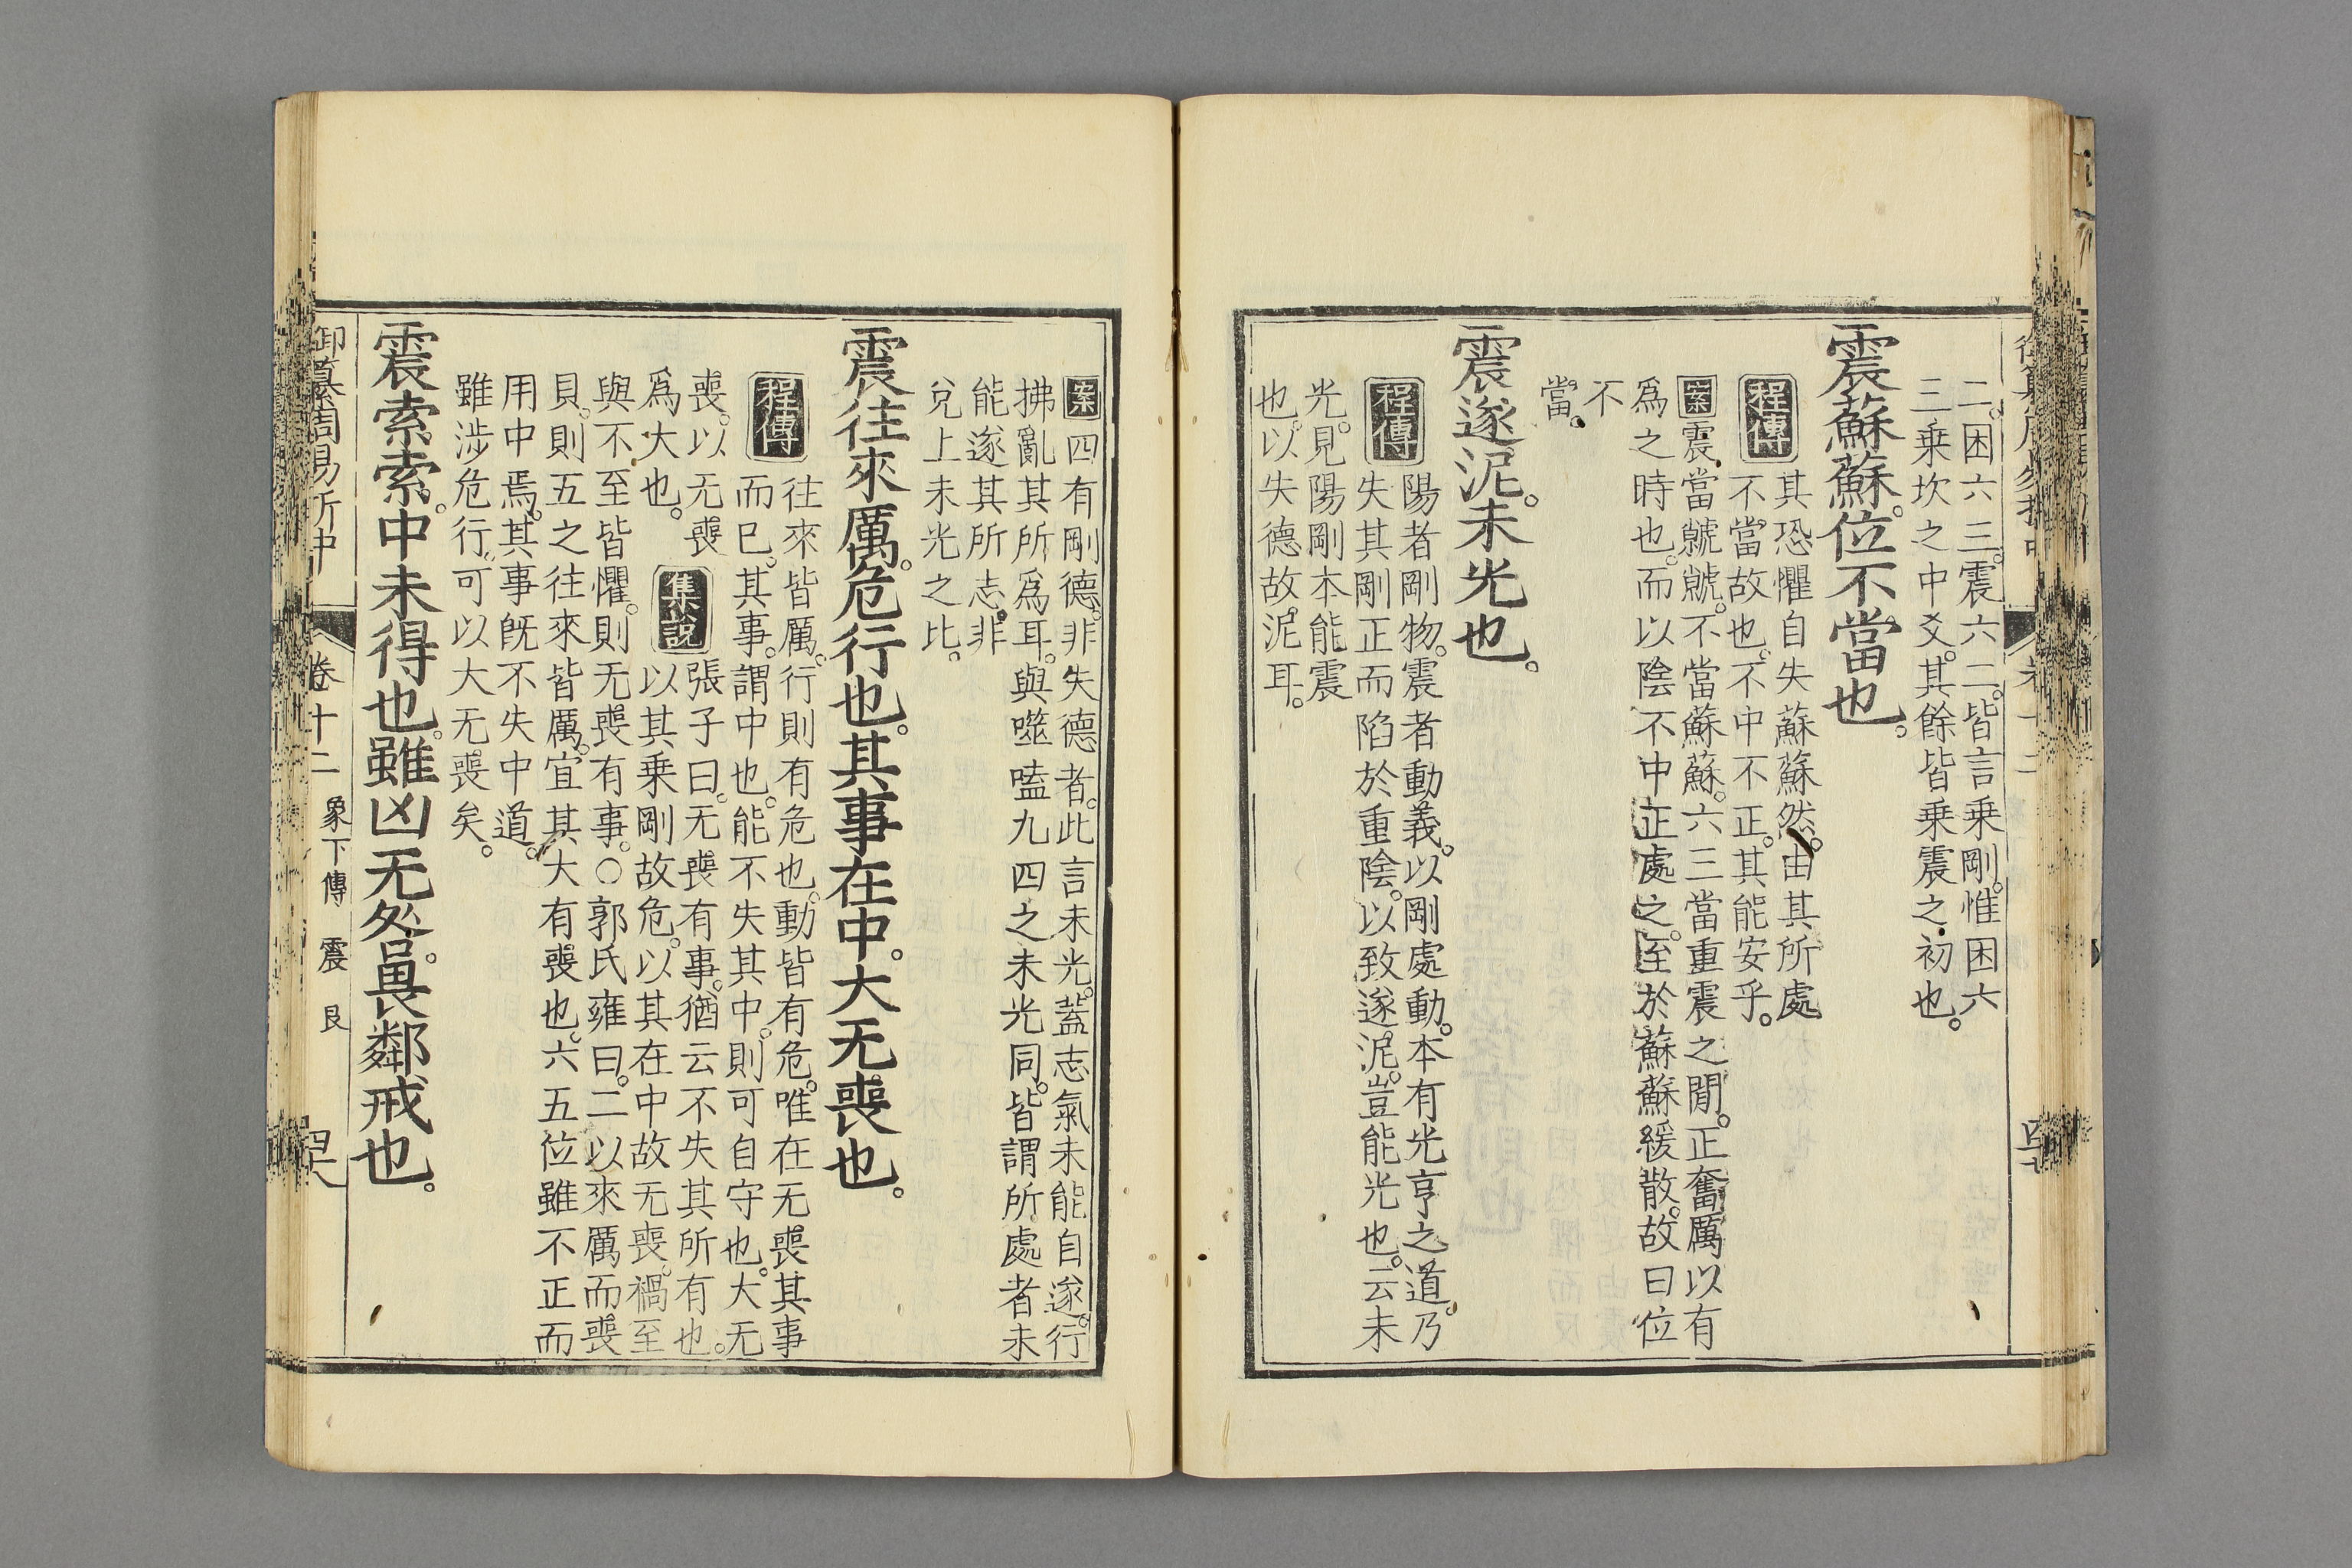 二。困六三。震六二。皆言乗剛。惟困六
三乗坎之中爻。其餘皆乗震之初也。
震蘇蘇。位不當也。
程傳
其恐懼自失蘇蘇然。由其所處
不當故也。不中不正。其能安乎。
案震當虩虩。不當蘇蘇。六三當重震之閒。正奮厲以有
爲之時也。而以陰不中正處之。至於蘇蘇緩散。故曰位
不
當。
震遂泥。未光也。
程傳
陽者剛物。震者動義。以剛處動。本有光亨之道。乃
失其剛正而陷於重陰。以致遂泥。豈能光也。云未
光。見陽剛本能震
也。以失德故。泥耳。
案四有剛德。非失德者。此言未光。蓋志氣未能自遂。行
拂亂其所爲耳。與噬嗑九四之未光同。皆謂所處者未
能遂其所志。非
兌上未光之比。
震往來厲。危行也。其事在中。大无喪也。
程傳
往來皆厲。行則有危也。動皆有危。唯在无喪其事
而已。其事。謂中也。能不失其中。則可自守也。大无
喪。以无喪
爲大也。
集說
張子曰。无喪有事。猶云不失其所有也。
以其乗剛故危。以其在中故无喪。禍至
與不至皆懼。則无喪有事。○郭氏雍曰。二以來厲而喪
貝。則五之往來皆厲。宜其大有喪也。六五位雖不正而
用中焉。其事旣不失中道。
雖涉危行。可以大无喪矣。
震索索。中未得也。雖凶无咎。畏鄰戒也。
御纂周易折中
卷十二
象下傳 震 艮